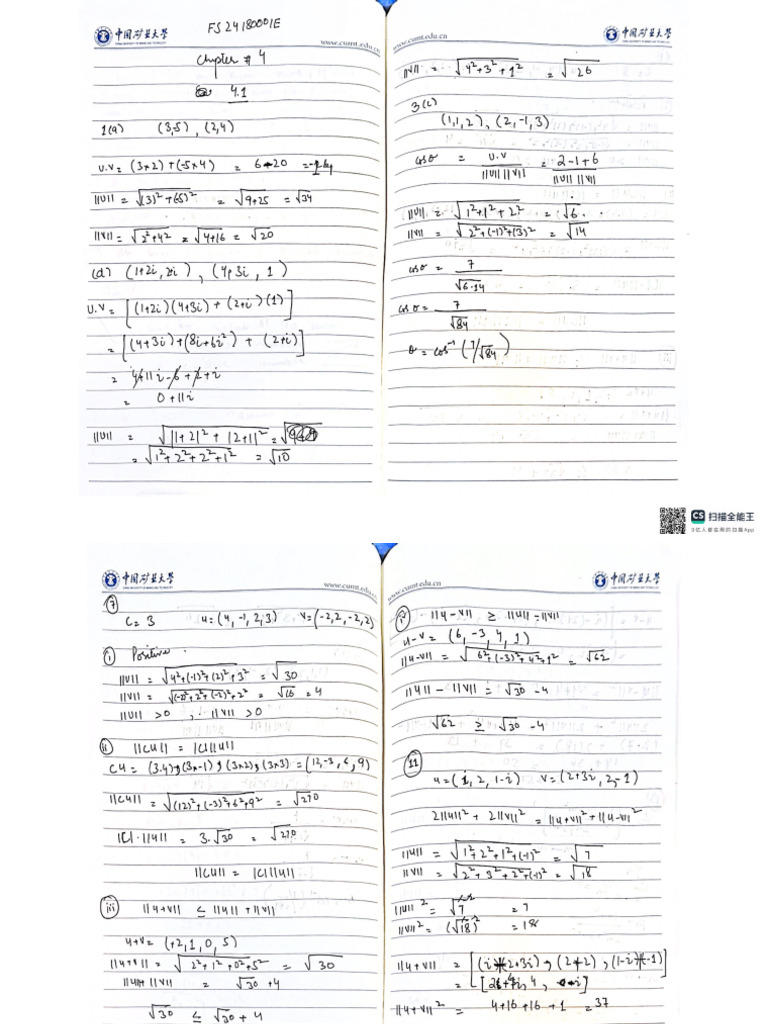 中国矿业大学
FS24180001E
www.cumt.edu.cn
Chapter # 4
4.1
1(a) (3,5) , (2,4)
U.V = (3×2) + (-5×4) = 6-20 =
||U|| = √(3)²+(-5)² = √9+25 = √34
||V|| = √2²+4² = √4+16 = √20
(d) (1+2i, 2i) , (4+3i, 1)
U.V = [(1+2i)(4+3i) + (2+i)(1)]
= [(4+3i)+(8i+6i²) + (2+i)]
= 4+11i-6+2+i
= 0+11i
||U|| = √|1+2|² + |2+1|² = √
= √1²+2²+2²+1² = √10
www.cumt.edu.cn
中国矿业大学
||V|| = √4²+3²+1² = √26
3(c)
(1,1,2), (2,-1,3)
cosθ = U.V / ||U|| ||V|| = 2-1+6 / ||U|| ||V||
||U|| = √1²+1²+2² = √6.
||V|| = √2²+(-1)²+(3)² = √14
cosθ = 7 / √6.14
cosθ = 7 / √84
θ = cos⁻¹(7/√84)
CS 扫描全能王
3亿人都在用的扫描App
中国矿业大学
www.cumt.edu.cn
7
C= 3 u=(4,-1,2,3) V=(-2,2,-2,2)
i Positive.
||U|| = √4²+(-1)²+(2)²+3² = √30
||V|| = √(-2)²+2²+(-2)²+2² = √16 = 4
||U|| >0 , ||V|| >0
ii ||CU|| = |C| ||U||
CU = (3.4), (3×-1), (3×2), (3×3) = (12,-3,6,9)
||CU|| = √(12)²+(-3)²+6²+9² = √270
|C|.||U|| = 3.√30 = √270
||CU|| = |C| ||U||
iii ||U+V|| ≤ ||U||+||V||
U+V = (+2,1,0,5)
||U+V|| = √2²+1²+0²+5² = √30
||U||+||V|| = √30+4
√30 ≤ √30+4
www.cumt.edu.cn
中国矿业大学
iv ||U-V|| ≥ ||U||-||V||
U-V = (6,-3,4,1)
||U-V|| = √6²+(-3)²+4²+1² = √62
||U||-||V|| = √30-4
√62 ≥ √30-4
11
u=(i,2,1-i) V=(2+3i,2,-1)
2||U||²+2||V||² = ||U+V||²+||U-V||²
||U|| = √1²+2²+1²+(-1)² = √7
||V|| = √2²+3²+2²+(-1)² = √18
||U||² = √7² = 7
||V||² = (√18)² = 18
||U+V|| = [(i+2+3i), (2+2), (1-i)+(-1)]
= [2+4i, 4, -i]
||U+V||² = 4+16+16+1 = 37